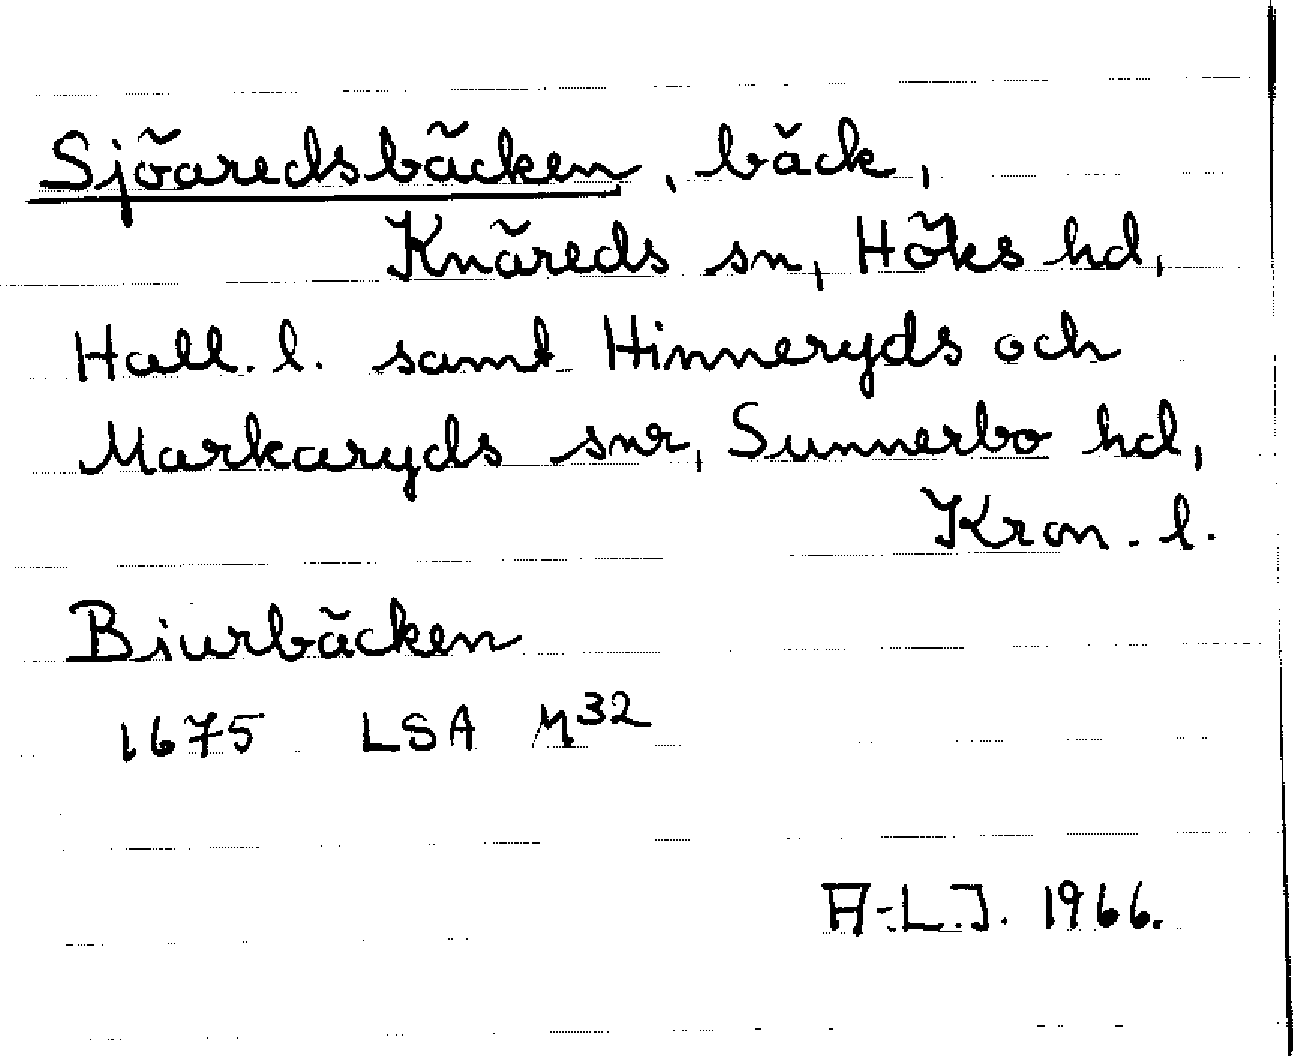 Sjöaredsbäcken, bäck,
Knäreds sn, Höks hd,
Hall. l. samt Hinneryds och
Markaryds snr, Sunnerbo hd,
Kron. l.
Biurbäcken
1675 LSA M³²
A-L.J. 1966.